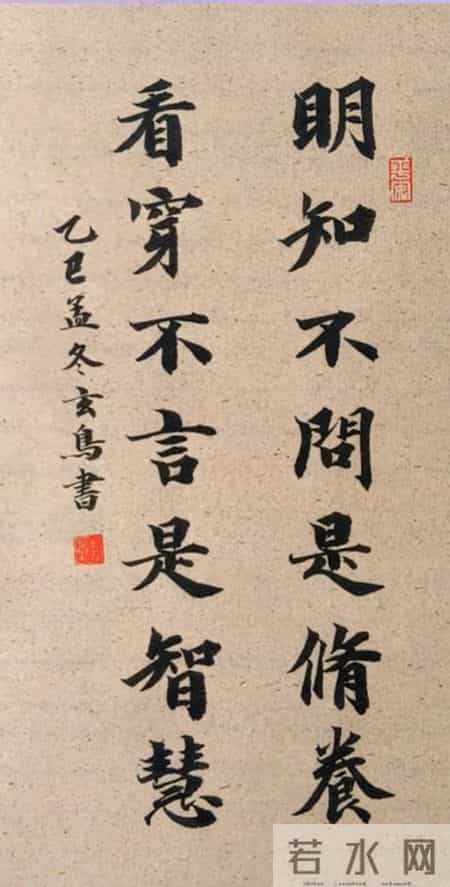 明知不問是脩養
看穿不言是智慧
乙巳孟冬玄鳥書
若水网